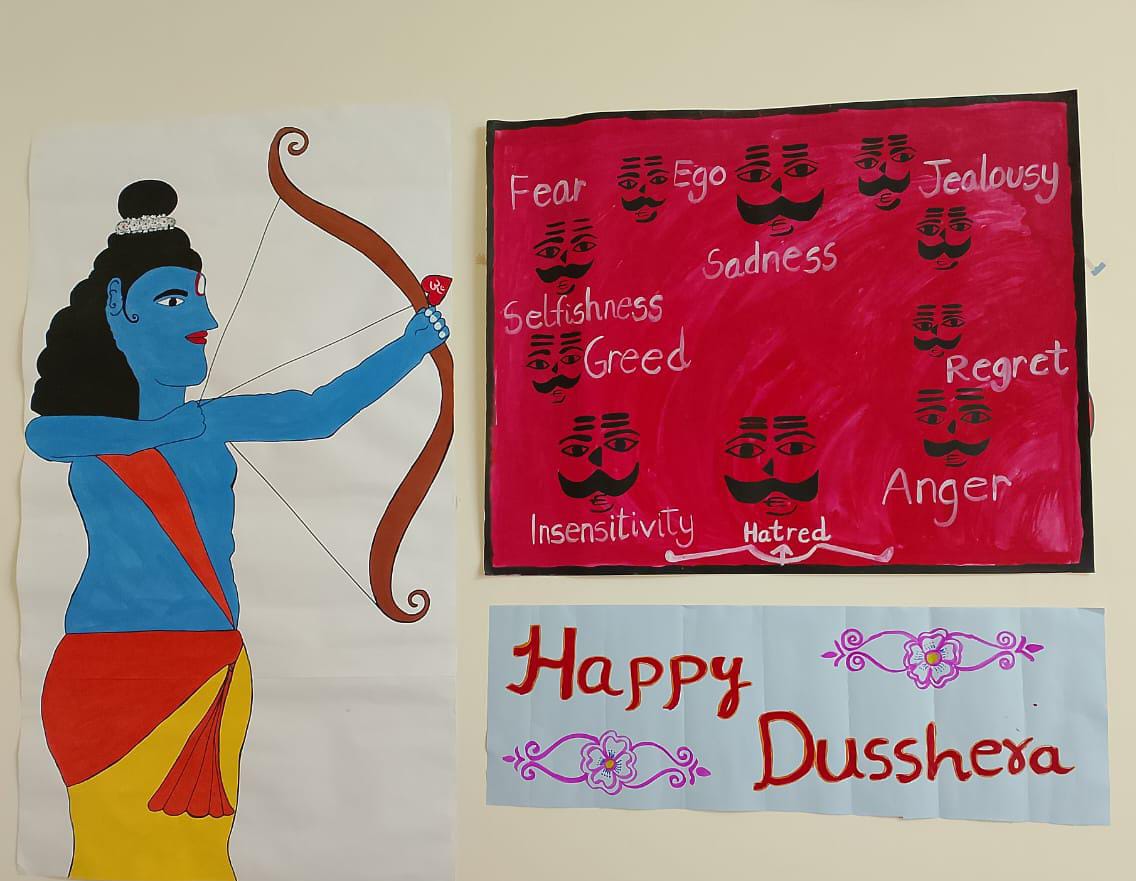 Fear
Ego
Jealousy
Sadness
Selfishness
Greed
Regret
Anger
Insensitivity
Hatred
Happy
Dusshera